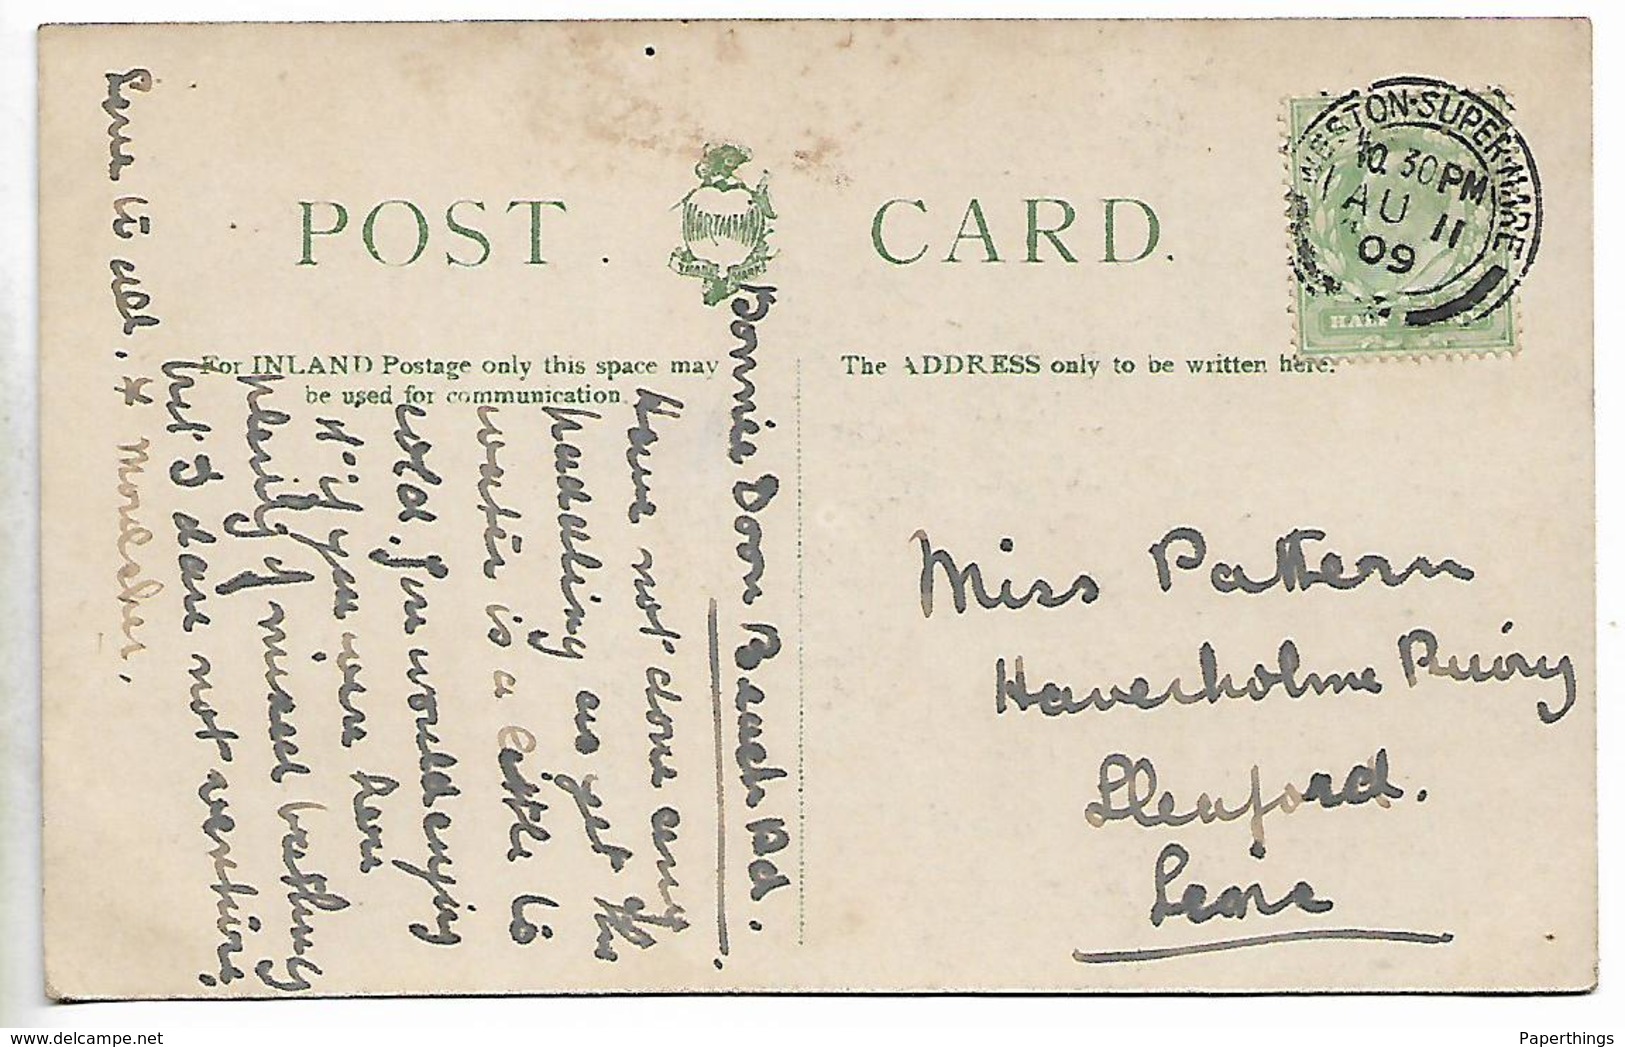 POST CARD.
HARTMANN
TRADE MARK
For INLAND Postage only this space may
be used for communication.
The ADDRESS only to be written here.
WESTON-SUPER-MARE
10.30PM
AU 11
09
HALF PENNY
Bonnie Doon Beach Rd.
Have not done any
paddling as yet for the
water is a little to
cold. You would enjoy
it if you were here
plenty of mixed bathing
but I dare not venture.
Love to all. * Mouldsher.
Miss Pattern
Haverholme Priory
Sleaford.
Lincs
Paperthings